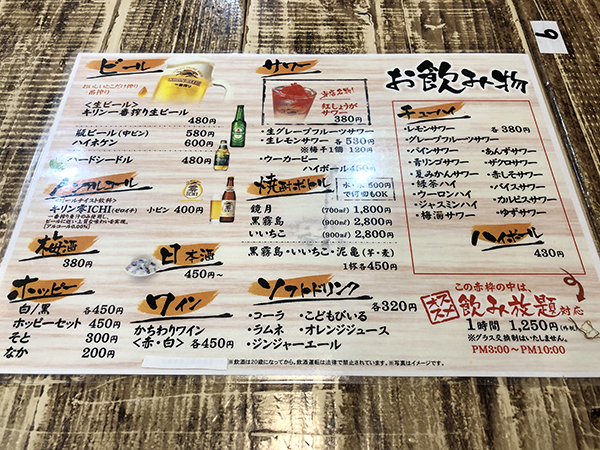 お飲み物
9
ビール
おいしいとこだけ搾り
一番搾り
<生ビール>
キリン一番搾り生ビール
480円
瓶ビール(中ビン) 580円
ハイネケン 600円
ハードシードル 480円
ノンアルコール
<ビールテイスト飲料>
キリン零ICHI(ゼロイチ) 小ビン 400円
一番搾り麦汁のみ使用。
ビールに近い上質な味わいを実現。
[アルコール0.00%]
梅酒
380円
日本酒
450円〜
ホッピー
白/黒 各450円
ホッピーセット 450円
そと 300円
なか 200円
ワイン
かちわりワイン
<赤・白>各450円
サワー
当店名物!
紅しょうが
サワー
380円
・生グレープフルーツサワー
・生レモンサワー 各530円
※替チ1個 120円
・ウーカーピー
ハイボール 450円
焼酎ボトル
水・氷 500円
で何回もOK
鏡月 (700㎖) 1,800円
黒霧島 (900㎖) 2,800円
いいちこ (900㎖) 2,800円
黒霧島・いいちこ・泥亀(芋・麦)
1杯各450円
ソフトドリンク
各320円
・コーラ ・こどもびいる
・ラムネ ・オレンジジュース
・ジンジャーエール
チューハイ
・レモンサワー 各380円
・グレープフルーツサワー
・パインサワー ・あんずサワー
・青リンゴサワー ・ザクロサワー
・夏みかんサワー ・赤しそサワー
・緑茶ハイ ・バイスサワー
・ウーロンハイ ・カルピスサワー
・ジャスミンハイ ・ゆずサワー
・梅酒サワー
ハイボール
430円
この赤枠の中は、
オススメ 飲み放題 対応
1時間 1,250円(外税)
※グラス交換制はいたしません。
PM3:00〜PM10:00
※飲酒は20歳になってから。飲酒運転は法律で禁止されています。※写真はイメージです。